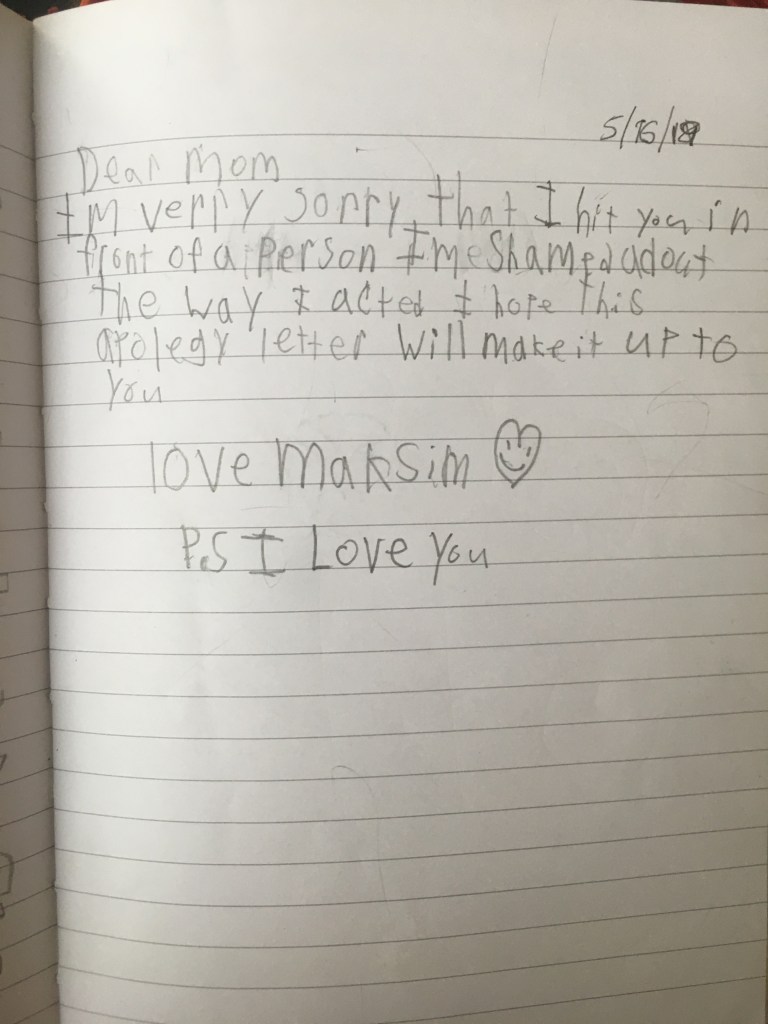 5/16/18
Dear Mom
I'm verry sorry that I hit you in
front of a person I'me Shamed adout
the way I acted I hope this
apolegy letter will make it up to
you
love Maksim
P.S I Love You